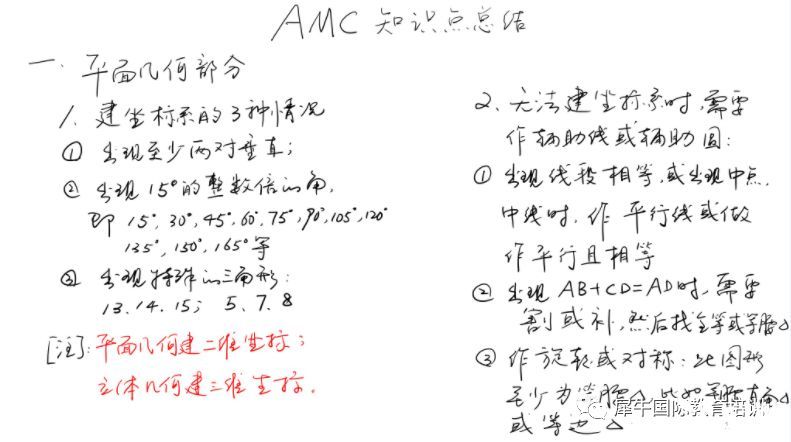 AMC 知识点总结
一、平面几何部分
1、建坐标系的3种情况
① 出现至少两对垂直；
② 出现15°的整数倍的角，
即 15°, 30°, 45°, 60°, 75°, 90°, 105°, 120°
135°, 150°, 165°等
③ 出现特殊的三角形：
13. 14. 15； 5、7、8
[注]：平面几何建二维坐标；
立体几何建三维坐标．
2、无法建坐标系时，需要
作辅助线或辅助圆：
① 出现线段相等，或出现中点、
中线时，作平行线或做
作平行且相等
② 出现 AB+CD=AD时，需要
割或补，然后找全等或等腰△
③ 作旋转或对称：此图形
至少为等腰△，比如等腰直角△
或等边△
犀牛国际教育培训